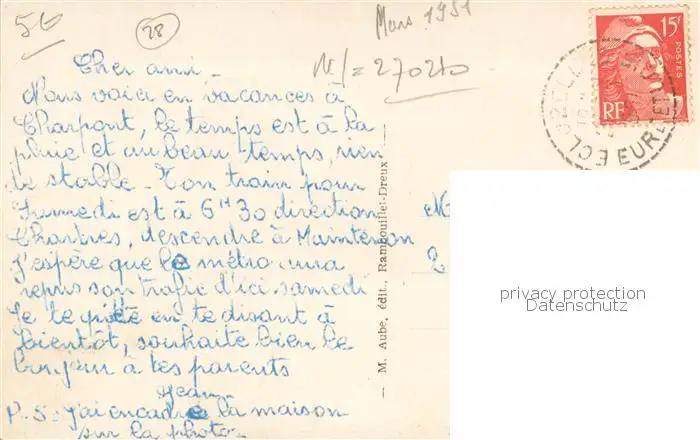 56
28
Mars 1951
N/= 27020
Cher ami -
Nous voici en vacances à
Charpont, le temps est à la
pluie et au beau temps, rien
de stable - Ton train pour
samedi est à 6H30 direction
Chartres, descendre à Maintenon
J'espère que le métro aura
repris son trafic d'ici samedi
Je te quitte en te disant à
bientôt, souhaite bien le
bonjour à tes parents
Jean
P.S. j'ai encadré la maison
sur la photo -
— M. Aube, édit., Rambouillet-Dreux —
15F
POSTES
RF
EURE ET
2
privacy protection
Datenschutz